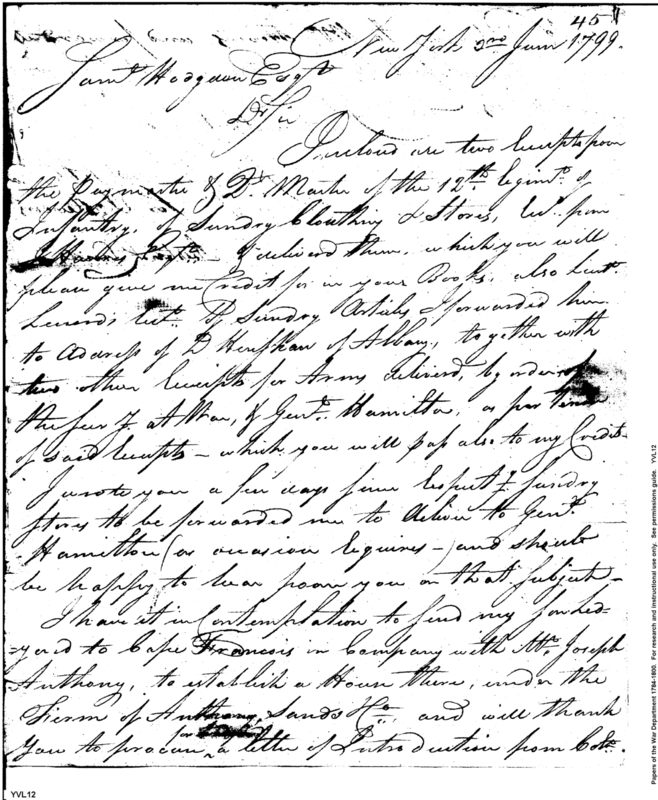 45
New York 2nd June 1799.
Saml. Hodgdon Esqr
Dr Sir
Inclosed are two Receipts from
the Paymaster & Qr. Master of the 12th. Regimt. of
Infantry, of Sundry Cloathing & Stores, Recd. from
delivered them, which you will
please give me Credit for in your Books, also Lieut.
Rect. of Sundry Articles I forwarded him
to address of D Henshaw of Albany, together with
two other Receipts for Arms deliverd, by order of
the Secry at War, & Genl. Hamilton, as per
of said Receipts — which you will pass also to my Credit
I wrote you a few days since Respectg sundry
stores to be forwarded me to deliver to Genl.
Hamilton (as occasion Requires —) and should
be happy to hear from you on that subject —
I have it in Contemplation to send my son
to Cape Francois in Company with Mr. Joseph
Anthony, to establish a House there, under the
Firm of Anthony, Sands & Co. and will thank
you to procure a letter of Introduction from Colo.
YVL12
Papers of the War Department 1784-1800. For research and instructional use only. See permissions guide. YVL12